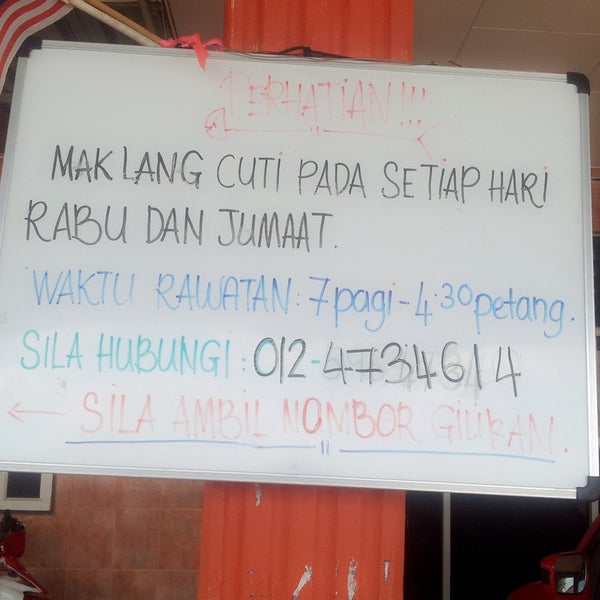 PERHATIAN!!!
MAK LANG CUTI PADA SETIAP HARI
RABU DAN JUMAAT.
WAKTU RAWATAN: 7pagi-4.30petang.
SILA HUBUNGI: 012-4734614
← SILA AMBIL NOMBOR GILIRAN.